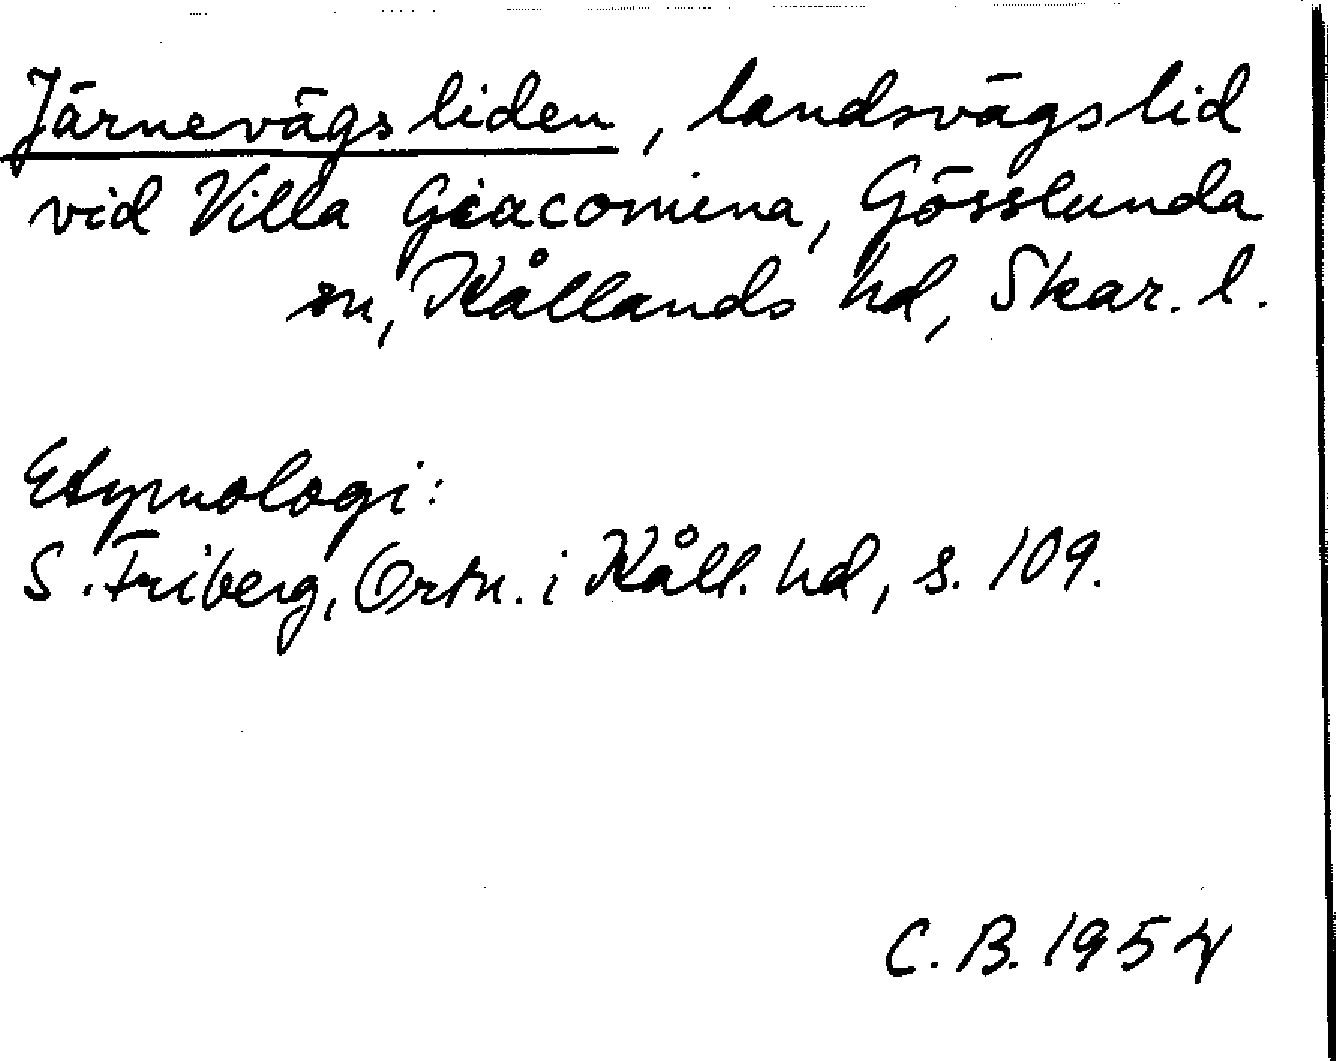 Järnevägsliden, landsvägslid
vid Villa Giacomina, Gösslunda
sn, Kållands hd, Skar. l.
Etymologi:
S. Friberg, Ortn. i Kåll. hd, s. 109.
C. B. 1954